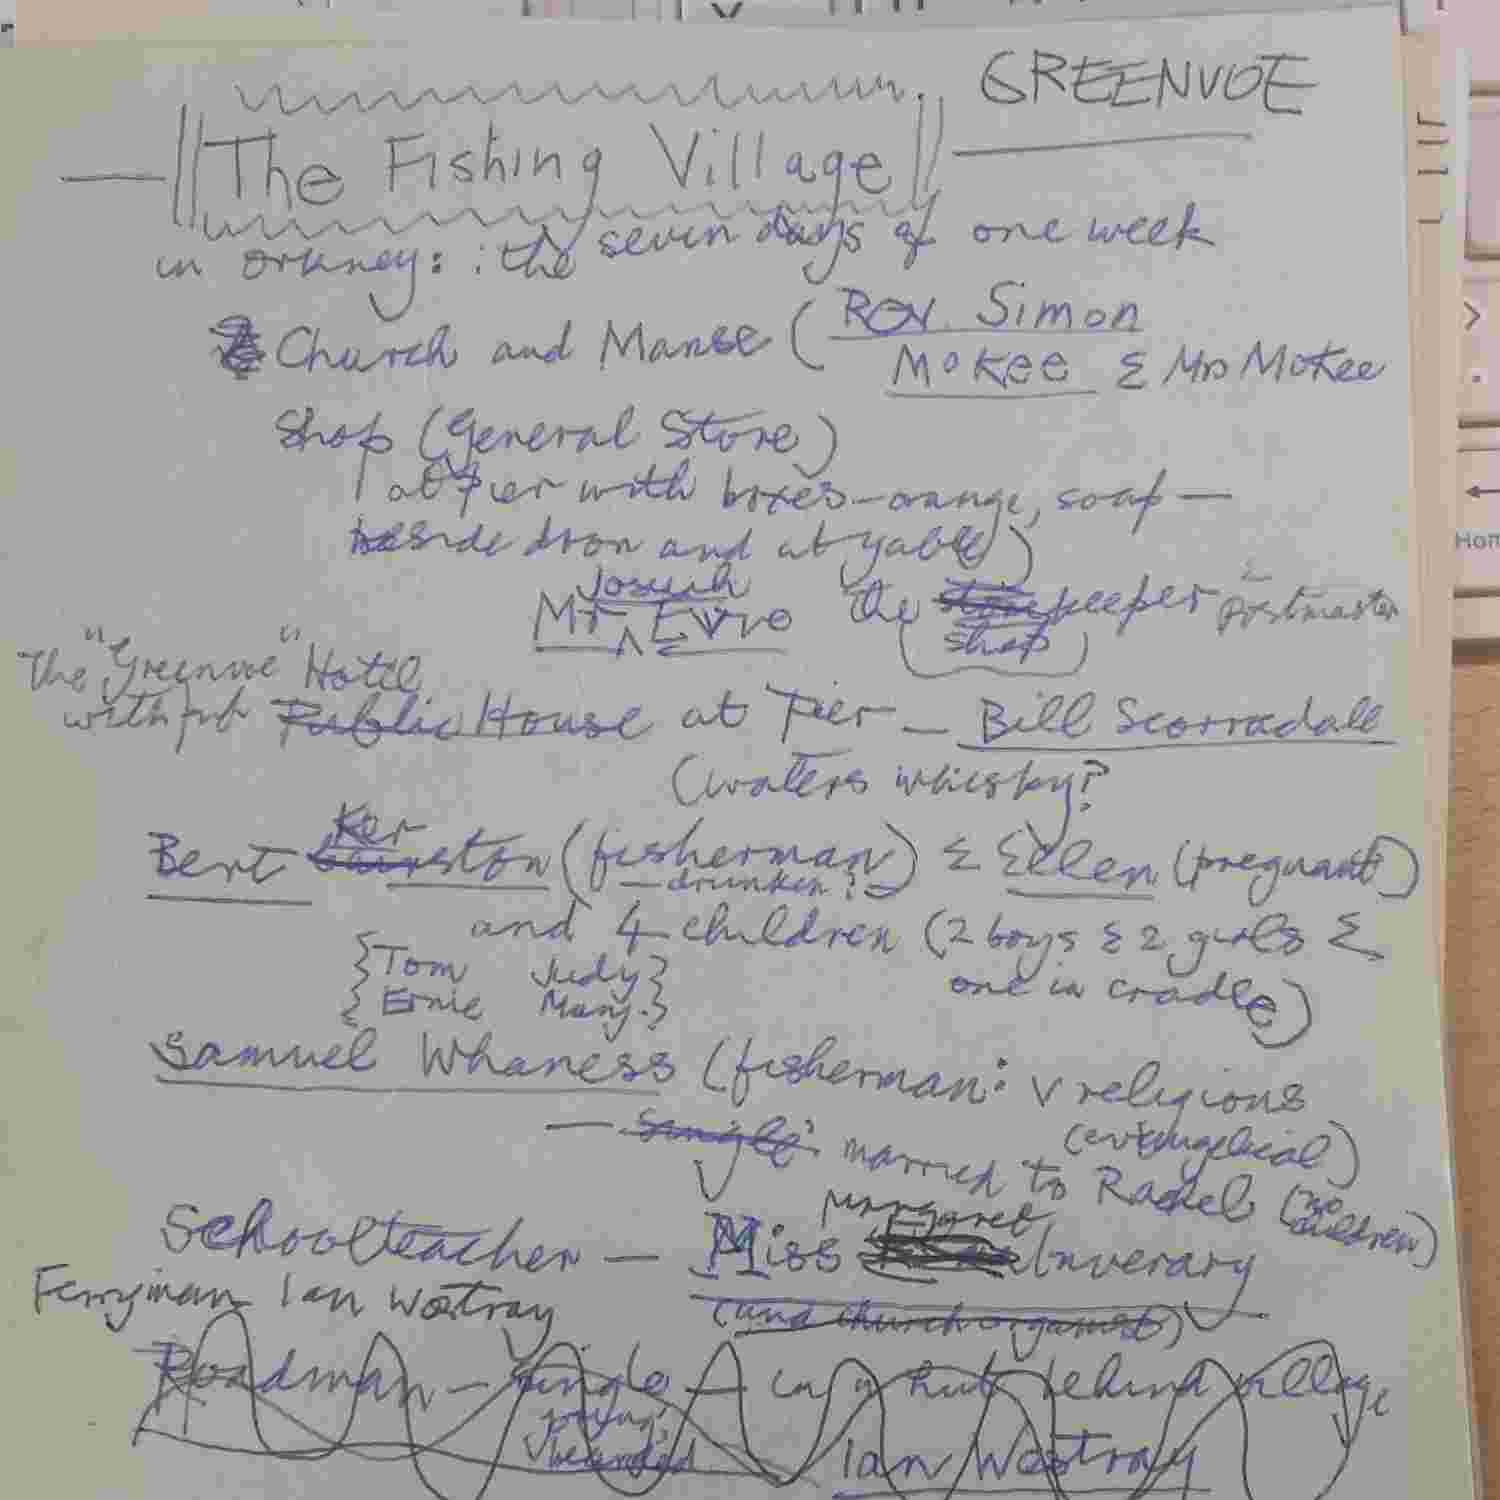 GREENVOE
The Fishing Village
in Orkney: : the seven days of one week
Church and Manse (Rev. Simon
McKee & Mrs McKee
Shop (General Store)
at Pier with boxes - orange, soap -
beside door and at gable)
Mr Josiah Evvie the shopkeeper & postmaster
The "Greenvoe" Hotel
with pub Public House at Pier - Bill Scorradale
(waters whisky?
Bert Kerston (fisherman) & Ellen (pregnant)
- drunken?
and 4 children (2 boys & 2 girls &
{Tom Judy} one in cradle)
{Ernie Mary.}
Samuel Whaness (fisherman: v religious
(evangelical)
- single: married to Rachel (no children)
Schoolteacher - Miss Margaret Inverary
(and church organist)
Ferryman Ian Westray
Roadman - single - in a hut behind village
young,
bearded
Ian Westray
Hom